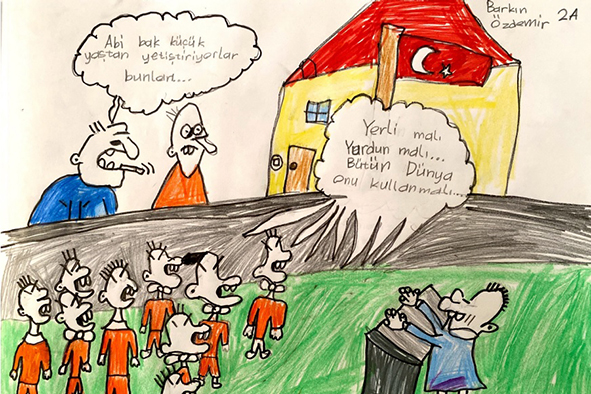 Abi bak küçük
yaştan yetiştiriyorlar
bunları...
Barkın 2A
Özdemir
Yerli malı
Yurdun malı...
Bütün Dünya
onu kullanmalı...